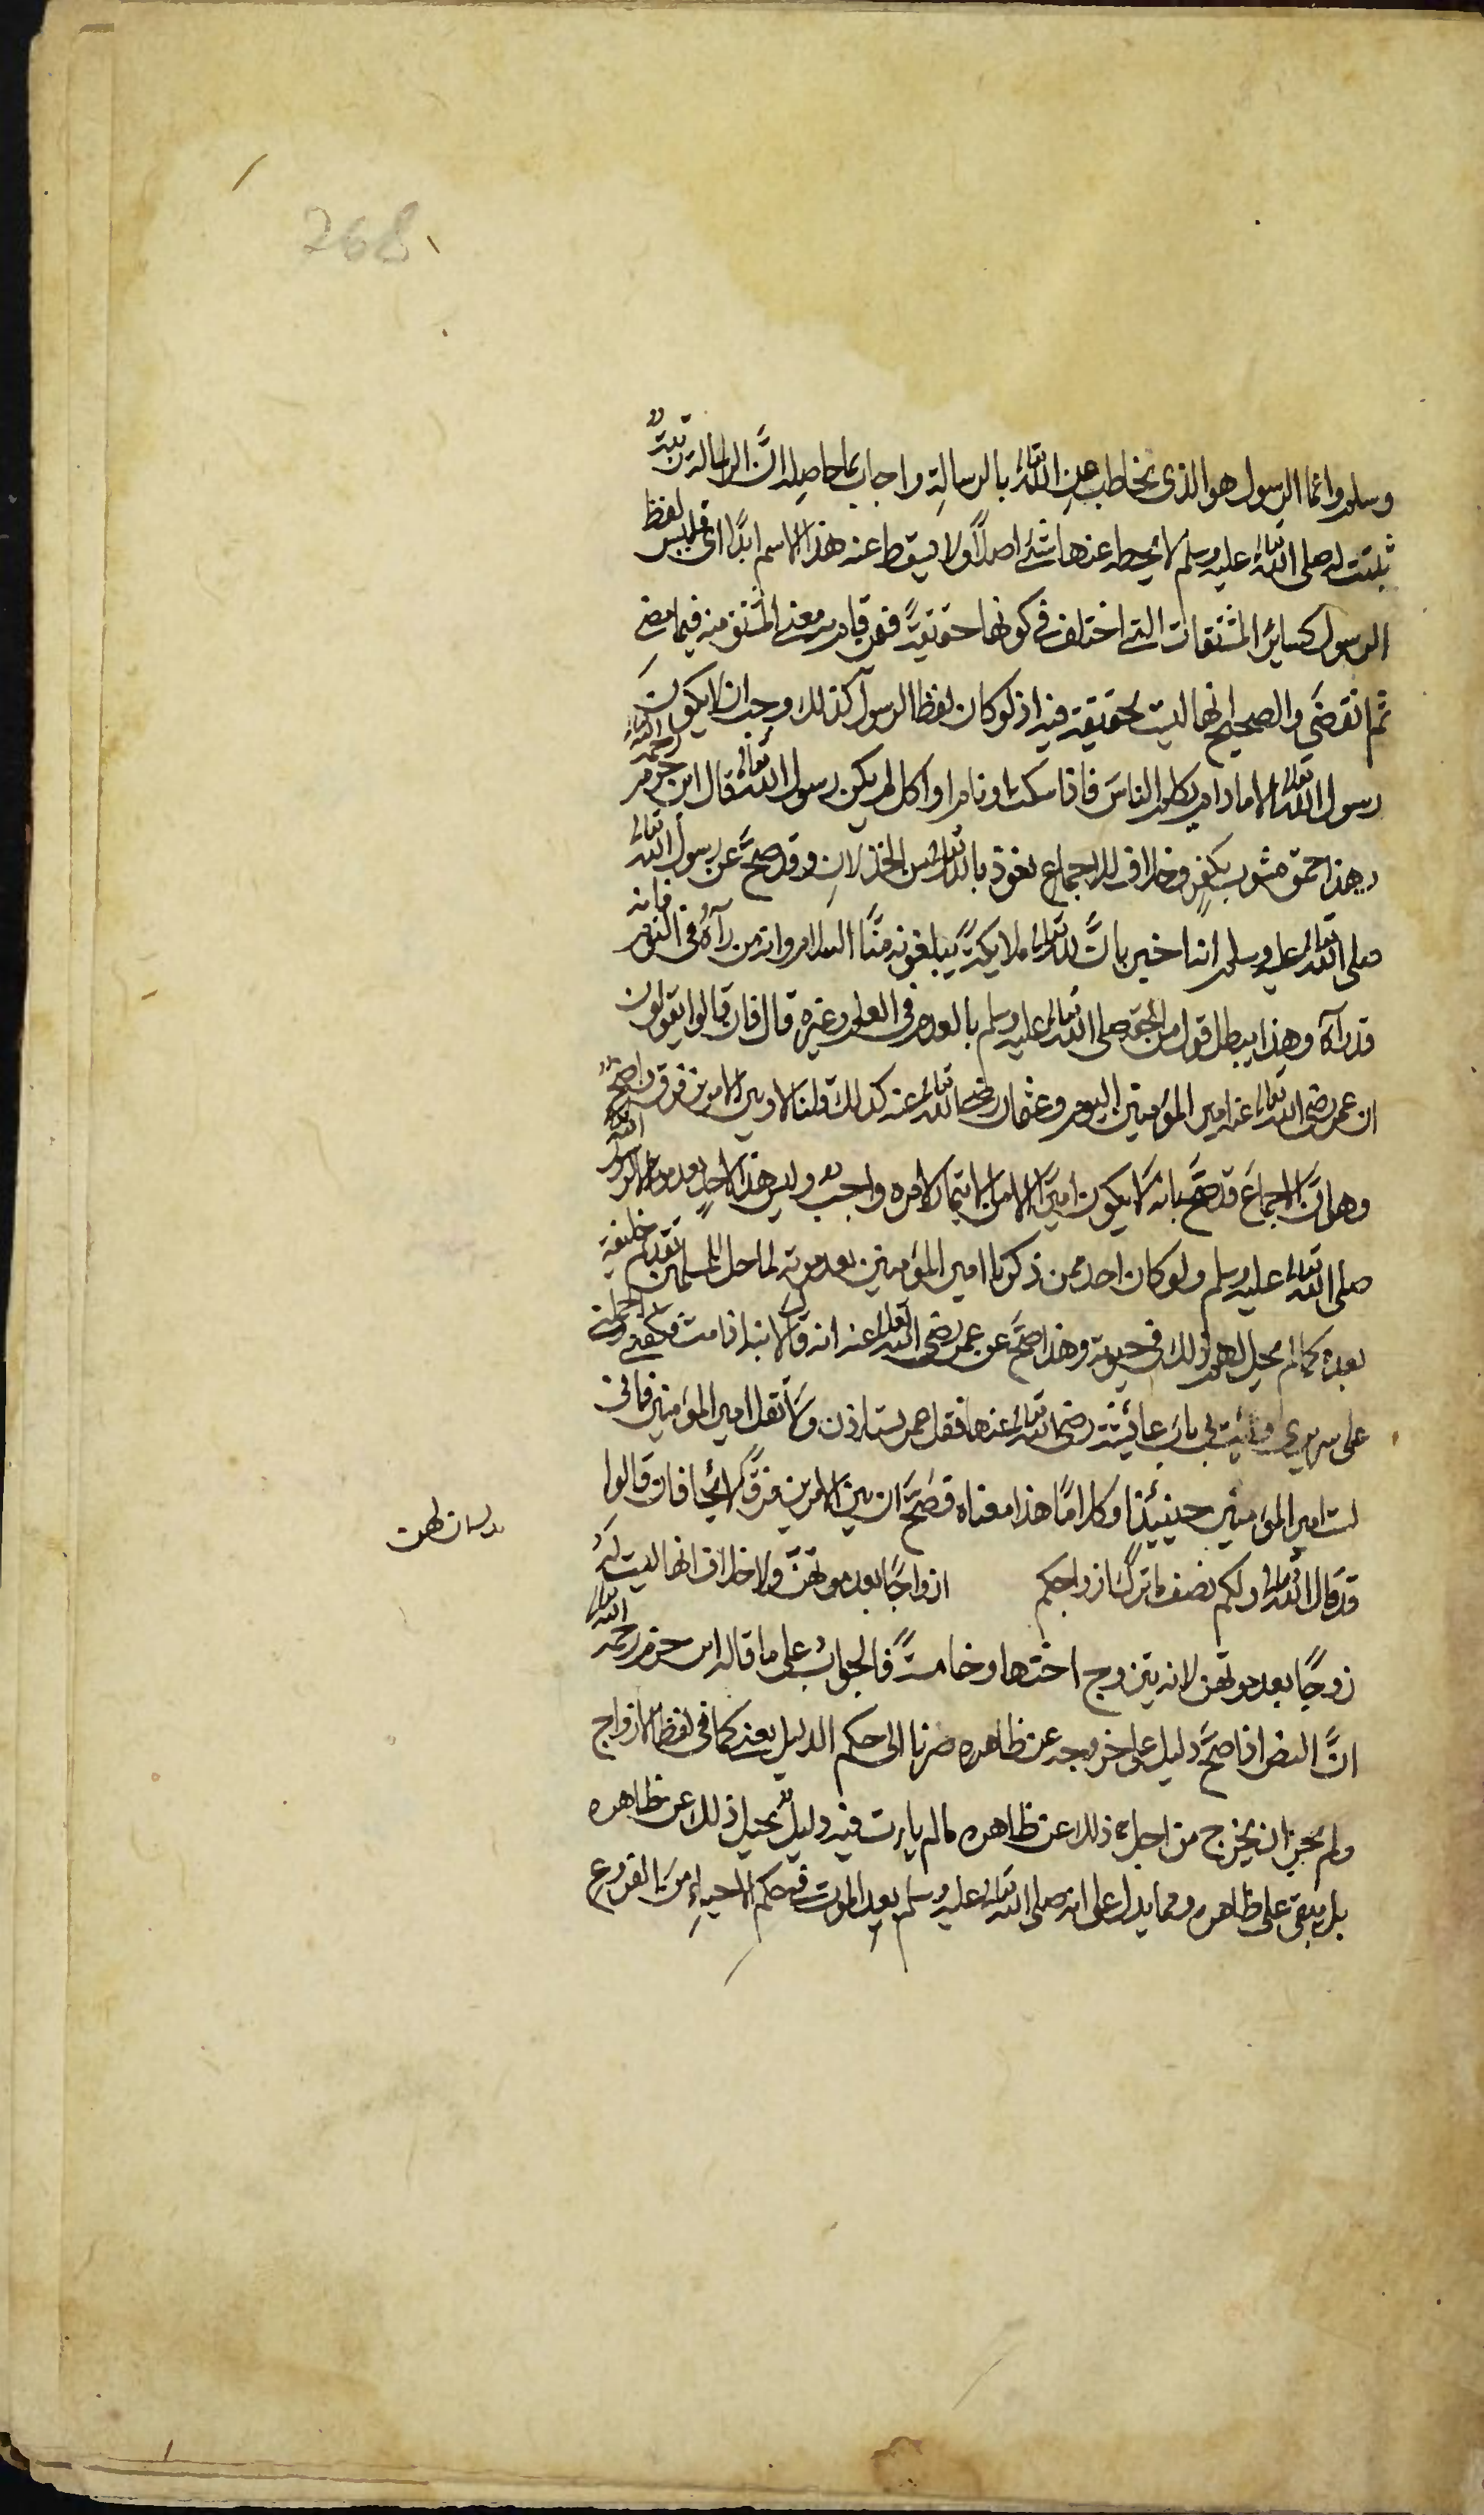 268
وسلم وانما الرسول هو الذى يخاطب عن الله تعالى بالرسالة واجاب بما حاصله ان الرسالة رتبة
ثبتت له صلى الله تعالى عليه وسلم لا يحطه عنها شئ اصلا ولا يسقط عنه هذا الاسم ابدا اى فليس لفظ
الرسول كساير المشتقات التى اختلف فى كونها حقيقة فمن قام به معنى المشتق منه فيما مضى
ثم انقضى والصحيح انها ليست بحقيقة فيه اذ لو كان لفظ الرسول كذلك وجب ان لا يكون
رسول الله تعالى الا ما دام يكلم الناس فاذا سكت او نام او اكل لم يكن رسول الله تعالى قال ابن حزم رحمه الله
وهذا حمق مشوب بكفر وخلاف للاجماع نعوذ بالله تعالى من الخذلان وقد صح عن رسول الله تعالى
صلى الله تعالى عليه وسلم انه اخبر بان لله تعالى ملايكة يبلغونه منا السلام وانه من رآه فى النوم فانه
قد رآه وهذا يبطل قول من الحقه صلى الله تعالى عليه وسلم بالعدم فى العلم وغيره قال فان قالوا تقولون
ان عمر رضى الله تعالى عنه امير المؤمنين اليوم وعثمان رضى الله تعالى عنه كذلك قلنا لا وبين الامرين فرق واضح
وهو ان الاجماع قد صح بانه لا يكون اميرا الا من الايتمار لامره واجب وليس هذا لاحد بعد موته الا لرسول الله
صلى الله تعالى عليه وسلم ولو كان احد ممن ذكروا امير المؤمنين بعد موته لما حل للمسلمين تقديم خليفة
بعده كما لم يحل لهم ذلك فى حيوته وهذا صح عن عمر رضى الله تعالى عنه انه قال لابنه اذا مت فكفنى واحملنى
على سريرى وائت بى باب عائشة رضى الله تعالى عنها فقل عمر يستاذن ولا تقل امير المؤمنين فانى
لست امير المؤمنين حينئذ او كلاما هذا معناه فصح ان بين الامرين فرقا لائحا فان قالوا
قد قال الله تعالى ولكم نصف ما ترك ازواجكم ازواجا بعد موتهن ولا خلاف انها ليست له
زوجا بعد موتهن لانه يتزوج اختها وخامسة فالجواب على ما قاله ابن حزم رحمه الله تعالى
ان النص اذا صح دليل على خروجه عن ظاهره صرنا الى حكم الدليل يعنى كما فى لفظ الازواج
ولم يجز ان يخرج من اجله ذلك عن ظاهره ما لم يات فيه دليل يحيل ذلك عن ظاهره
بل يبقى على ظاهره ومما يدل على انه صلى الله تعالى عليه وسلم بعد الموت فى حكم الاحياء من الفروع